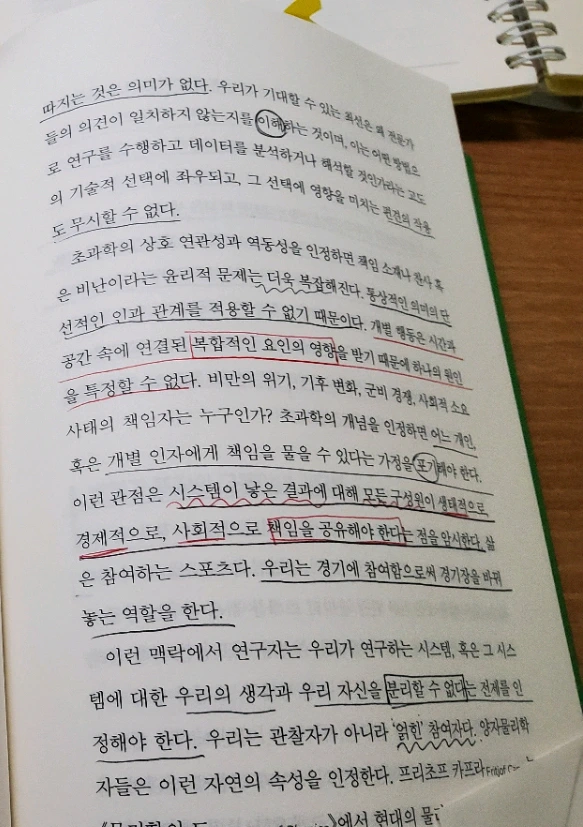 따지는 것은 의미가 없다. 우리가 기대할 수 있는 최선은 왜 전문가
들의 의견이 일치하지 않는지를 이해하는 것이며, 이는 어떤 방법으
로 연구를 수행하고 데이터를 분석하거나 해석할 것인가라는 고도
의 기술적 선택에 좌우되고, 그 선택에 영향을 미치는 편견의 작용
도 무시할 수 없다.
초과학의 상호 연관성과 역동성을 인정하면 책임 소재나 찬사 혹
은 비난이라는 윤리적 문제는 더욱 복잡해진다. 통상적인 의미의 단
선적인 인과 관계를 적용할 수 없기 때문이다. 개별 행동은 시간과
공간 속에 연결된 복합적인 요인의 영향을 받기 때문에 하나의 원인
을 특정할 수 없다. 비만의 위기, 기후 변화, 군비 경쟁, 사회적 소요
사태의 책임자는 누구인가? 초과학의 개념을 인정하면 어느 개인,
혹은 개별 인자에게 책임을 물을 수 있다는 가정을 포기해야 한다.
이런 관점은 시스템이 낳은 결과에 대해 모든 구성원이 생태적으로,
경제적으로, 사회적으로 책임을 공유해야 한다는 점을 암시한다. 삶
은 참여하는 스포츠다. 우리는 경기에 참여함으로써 경기장을 바꿔
놓는 역할을 한다.
이런 맥락에서 연구자는 우리가 연구하는 시스템, 혹은 그 시스
템에 대한 우리의 생각과 우리 자신을 분리할 수 없다는 전제를 인
정해야 한다. 우리는 관찰자가 아니라 '얽힌' 참여자다. 양자물리학
자들은 이런 자연의 속성을 인정한다. 프리초프 카프라Fritjof
에서 현대의